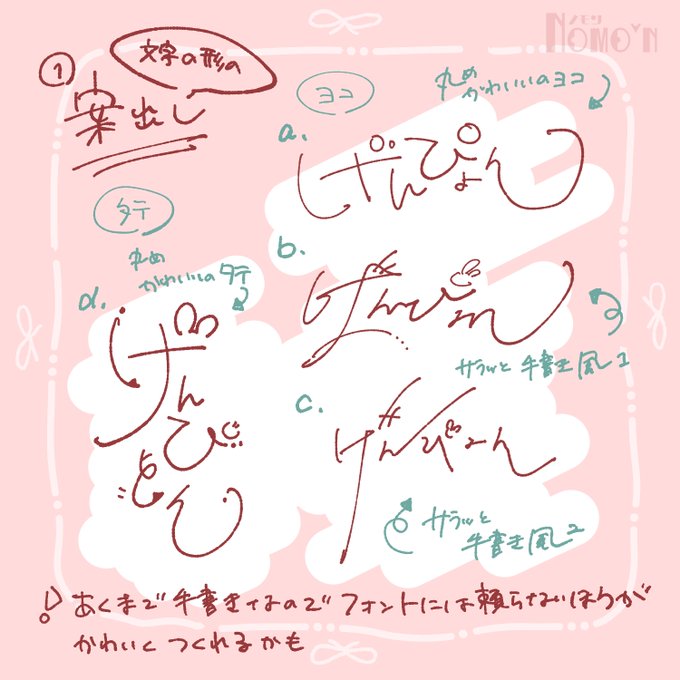 ノモン
NOMO♥N
①
文字の形の
案出し
ヨコ
丸め
かわいいのヨコ
a.
げんぴょん
タテ
丸め
かわいいのタテ
b.
げんぴょん
サラッと手書き風1
c.
げんぴょん
サラッと
手書き風2
d.
げんぴょん
! あくまで手書きなのでフォントには頼らないほうが
かわいくつくれるかも